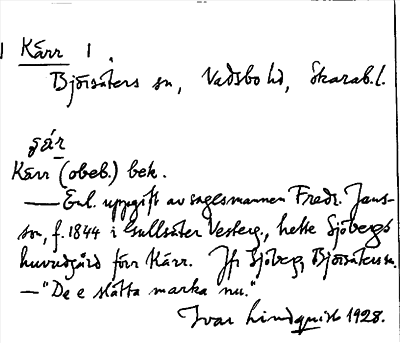 Kärr 1
Björsäters sn, Vadsbo hd, Skarab.l.
gár
Kärr (obeb.) bek.
— Enl. uppgift av sagesmannen Fredr. Jans-
son, f. 1844 i Gullsäter Vesterg., hette Sjöbergs
huvudgård förr Kärr. Jfr Sjöberg, Björsäters sn.
— "De e slätta marka nu."
Ivar Lindquist 1928.